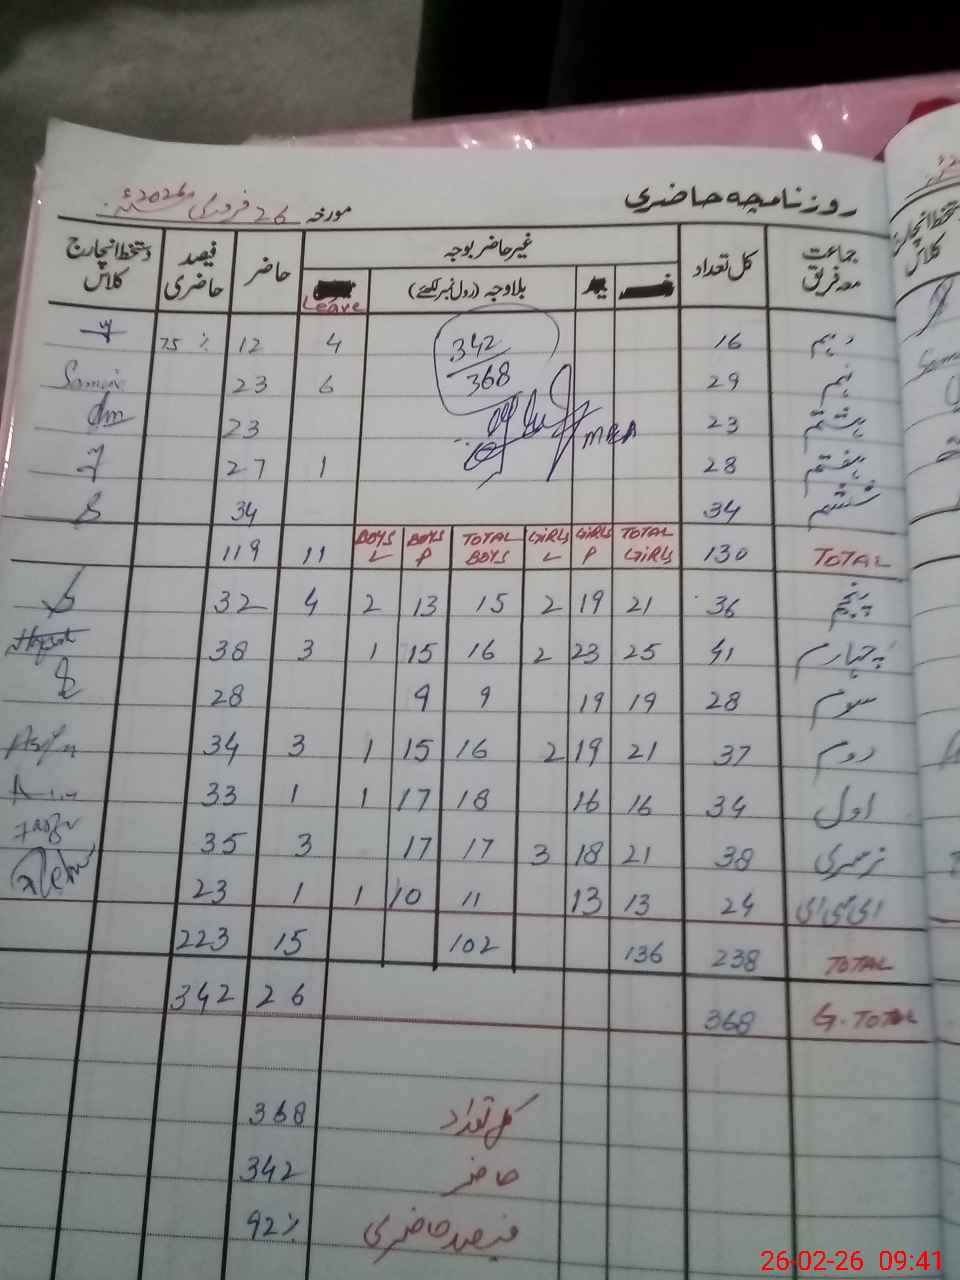 روزنامچہ حاضری
مورخہ 26 فروری 2026ء
جماعت معہ فریق کل تعداد غیر حاضر بوجہ حاضر فیصد حاضری دستخط انچارج کلاس
بلاوجہ (رول نمبر لکھئے) Leave
دہم 16 4 12 75 %
نہم 29 6 23
ہشتم 23 23
ہفتم 28 1 27
ششم 34 34
342
368
TOTAL 130 TOTAL GIRLS GIRLS P GIRLS L TOTAL BOYS BOYS P BOYS L 11 119
پنجم 36 21 19 2 15 13 2 4 32
چہارم 41 25 23 2 16 15 1 3 38
سوم 28 19 19 9 9 28
دوم 37 21 19 2 16 15 1 3 34
اول 34 16 16 18 17 1 1 33
نرسری 38 21 18 3 17 17 3 35
ای سی ای 24 13 13 11 10 1 1 23
TOTAL 238 136 102 15 223
G. TOTAL 368 26 342
کل تعداد 368
حاضر 342
فیصد حاضری 92%
26-02-26 09:41